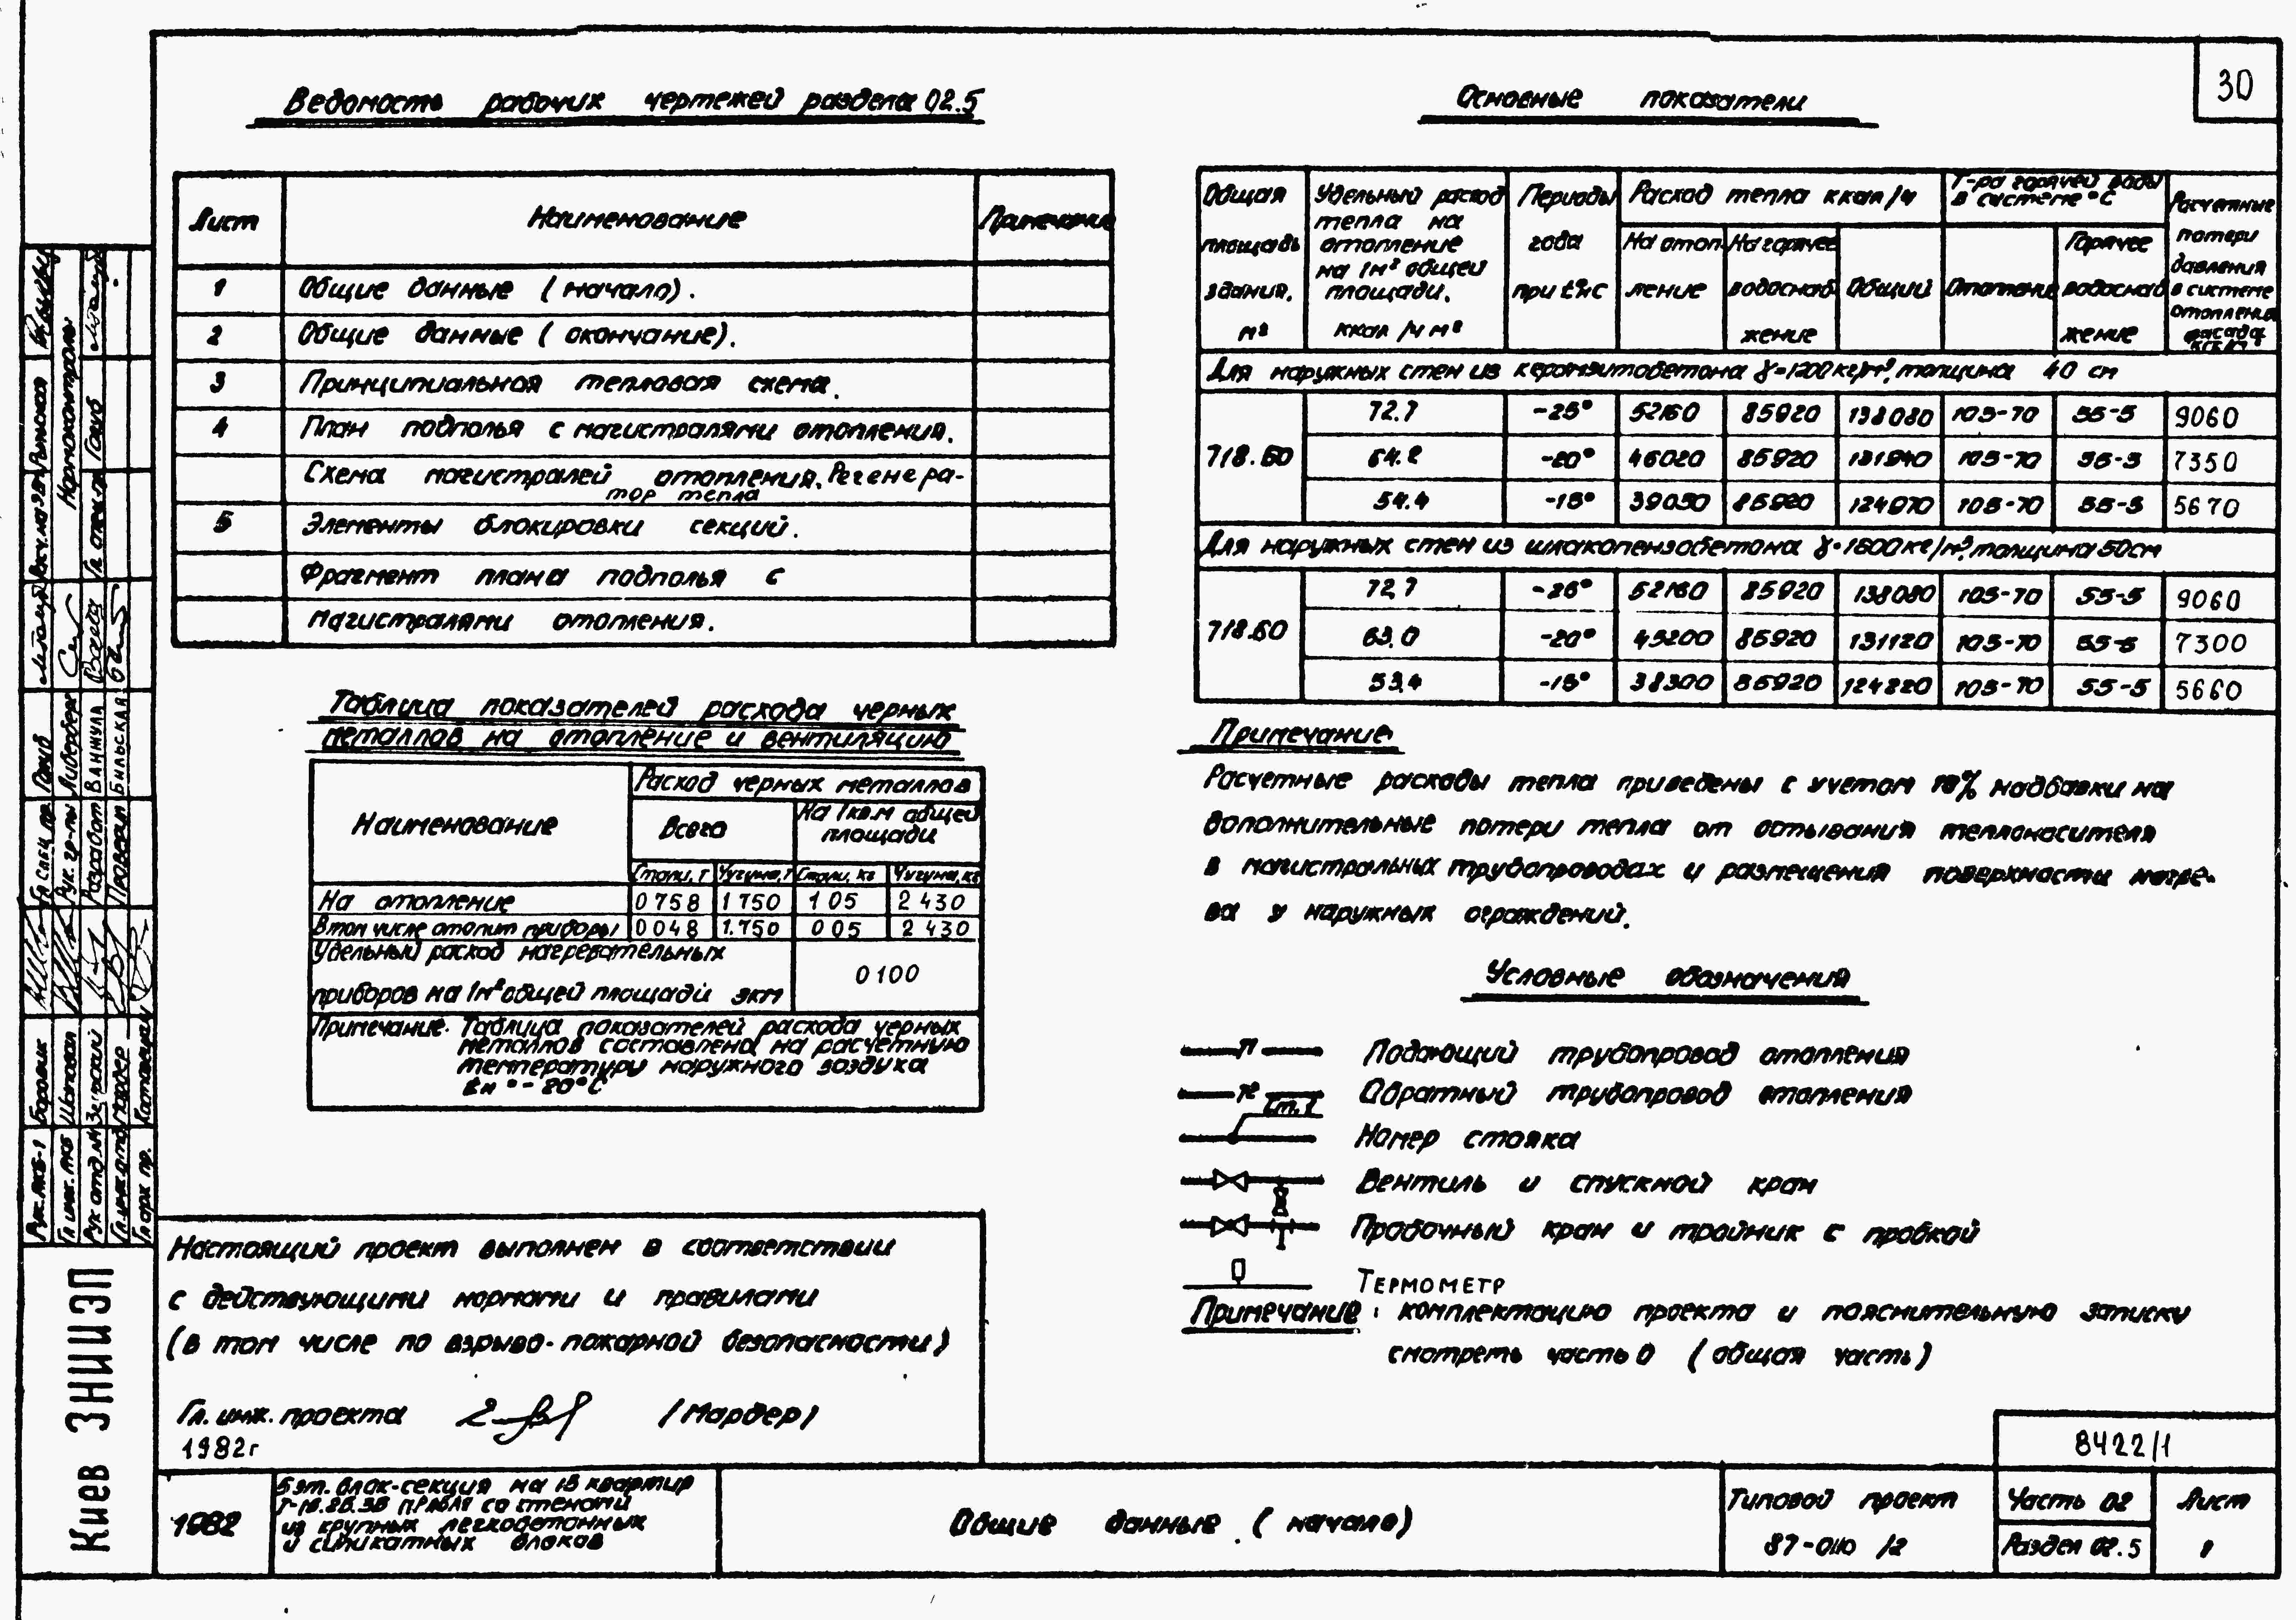 30
Ведомость рабочих чертежей раздела 02.5
Лист Наименование Примечание
1 Общие данные (начало).
2 Общие данные (окончание).
3 Принципиальная тепловая схема.
4 План подполья с магистралями отопления.
Схема магистралей отопления. Регенера-
тор тепла
5 Элементы блокировки секций.
Фрагмент плана подполья с
магистралями отопления.
Таблица показателей расхода черных
металлов на отопление и вентиляцию
Наименование
Расход черных металлов
Всего
На 1 кв.м общей
площади
Стали, т Чугуна, т Стали, кг Чугуна, кг
На отопление 0758 1750 105 2430
В том числе отопит приборы 0048 1.750 005 2430
Удельный расход нагревательных
приборов на 1м² общей площади экм 0100
Примечание. Таблица показателей расхода черных
металлов составлена на расчетную
температуру наружного воздуха
tн = -20°С
Настоящий проект выполнен в соответствии
с действующими нормами и правилами
(в том числе по взрыво-пожарной безопасности)
Гл. инж. проекта (Мардер)
1982г
Основные показатели
Общая площадь здания, м²
Удельный расход тепла на отопление на 1м² общей площади. ккал/ч м²
Периоды года при tн°С
Расход тепла ккал/ч
На отопление
На горячее водоснабжение
Общий
Т-ра горячей воды в системе °С
Отопление
Горячее водоснабжение
Расчетные потери давления в системе отопления
Для наружных стен из керамзитобетона γ=1200кг/м³, толщина 40 см
718.60
72.7 -25° 52160 85920 138080 105-70 55-5 9060
64.2 -20° 46020 85920 131940 105-70 55-5 7350
54.4 -15° 39050 85920 124970 105-70 55-5 5670
Для наружных стен из шлакопензобетона γ=1600кг/м³, толщина 50см
718.60
72,7 -25° 52160 85920 138080 105-70 55-5 9060
63.0 -20° 45200 85920 131120 105-70 55-5 7300
53.4 -15° 38300 85920 124220 105-70 55-5 5660
Примечание
Расчетные расходы тепла приведены с учетом 10% надбавки на
дополнительные потери тепла от остывания теплоносителя
в магистральных трубопроводах и размещения поверхности нагре-
ва у наружных ограждений.
Условные обозначения
Подающий трубопровод отопления
Обратный трубопровод отопления
Ст. 1
Номер стояка
Вентиль и спускной кран
Пробочный кран и тройник с пробкой
Термометр
Примечание: комплектацию проекта и пояснительную записку
смотреть часть 0 (общая часть)
8422/1
1982
5 эт. блок-секция на 15 квартир
со стенами
из крупных легкобетонных
и силикатных блоков
Общие данные. (начало)
Типовой проект
87-0110/2
Часть 02
Раздел 02.5
Лист
1
Киев ЗНИИЭП
Рук. АКБ-1 Боровик
Гл инж. АКБ Шаповал
Рук отд.
Гл. инж. пр. Мардер
Гл арх пр.
Гл спец пр. Голиб
Рук. гр-пы Либерберг
Разработ Ванжула
Проверил Бильская
Нормоконтроль
Голиб